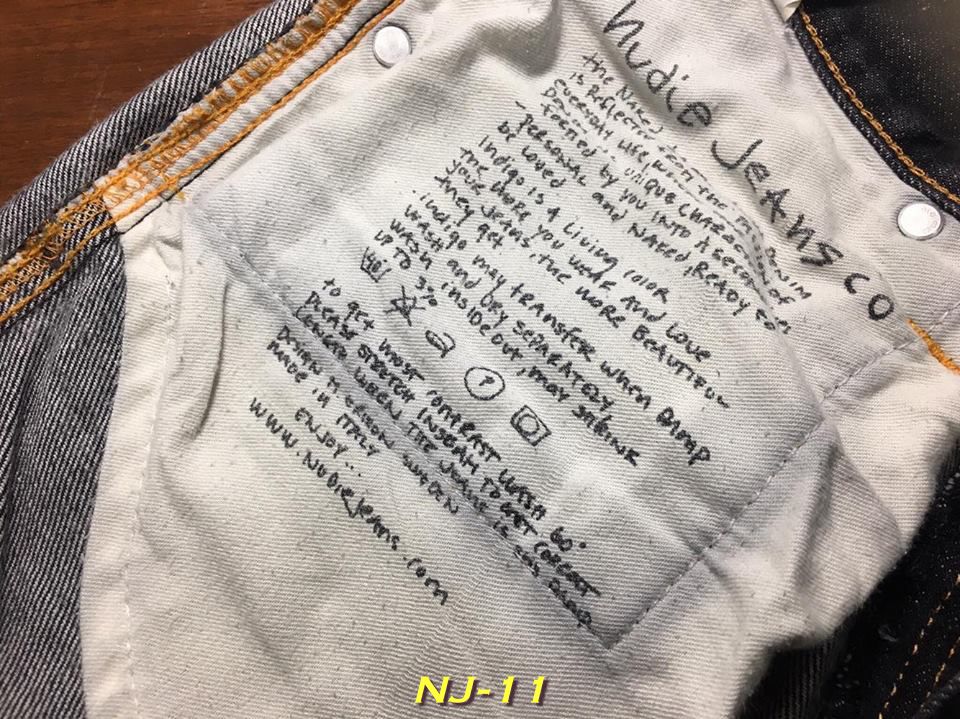 Nudie Jeans co
the NAKED TRUTH ABOUT DENIM
is REFLECTED in the passion of
EVERYDAY LIFE, WITH THE
UNIQUE CHARACTER of
by you INTO A SECOND
- PERSONAL and NAKED, READY to
be LOVED
indigo is A Living color
the more you wear AND LOVE
your JEANS, the more BEAUTIFUL
they get
- indigo may TRANSFER when DAMP
WASH and DRY SEPARATELY
WASH inside out, may SHRINK
up to 3%
P
to get most contrast WASH 60°
Please STRETCH INSEAM TO GET CORRECT
LENGTH when THE JEANS is still DAMP
DESIGN M. ERIXON SWEDEN
MADE in ITALY
ENJOY...
www.Nudiejeans.com
NJ-11